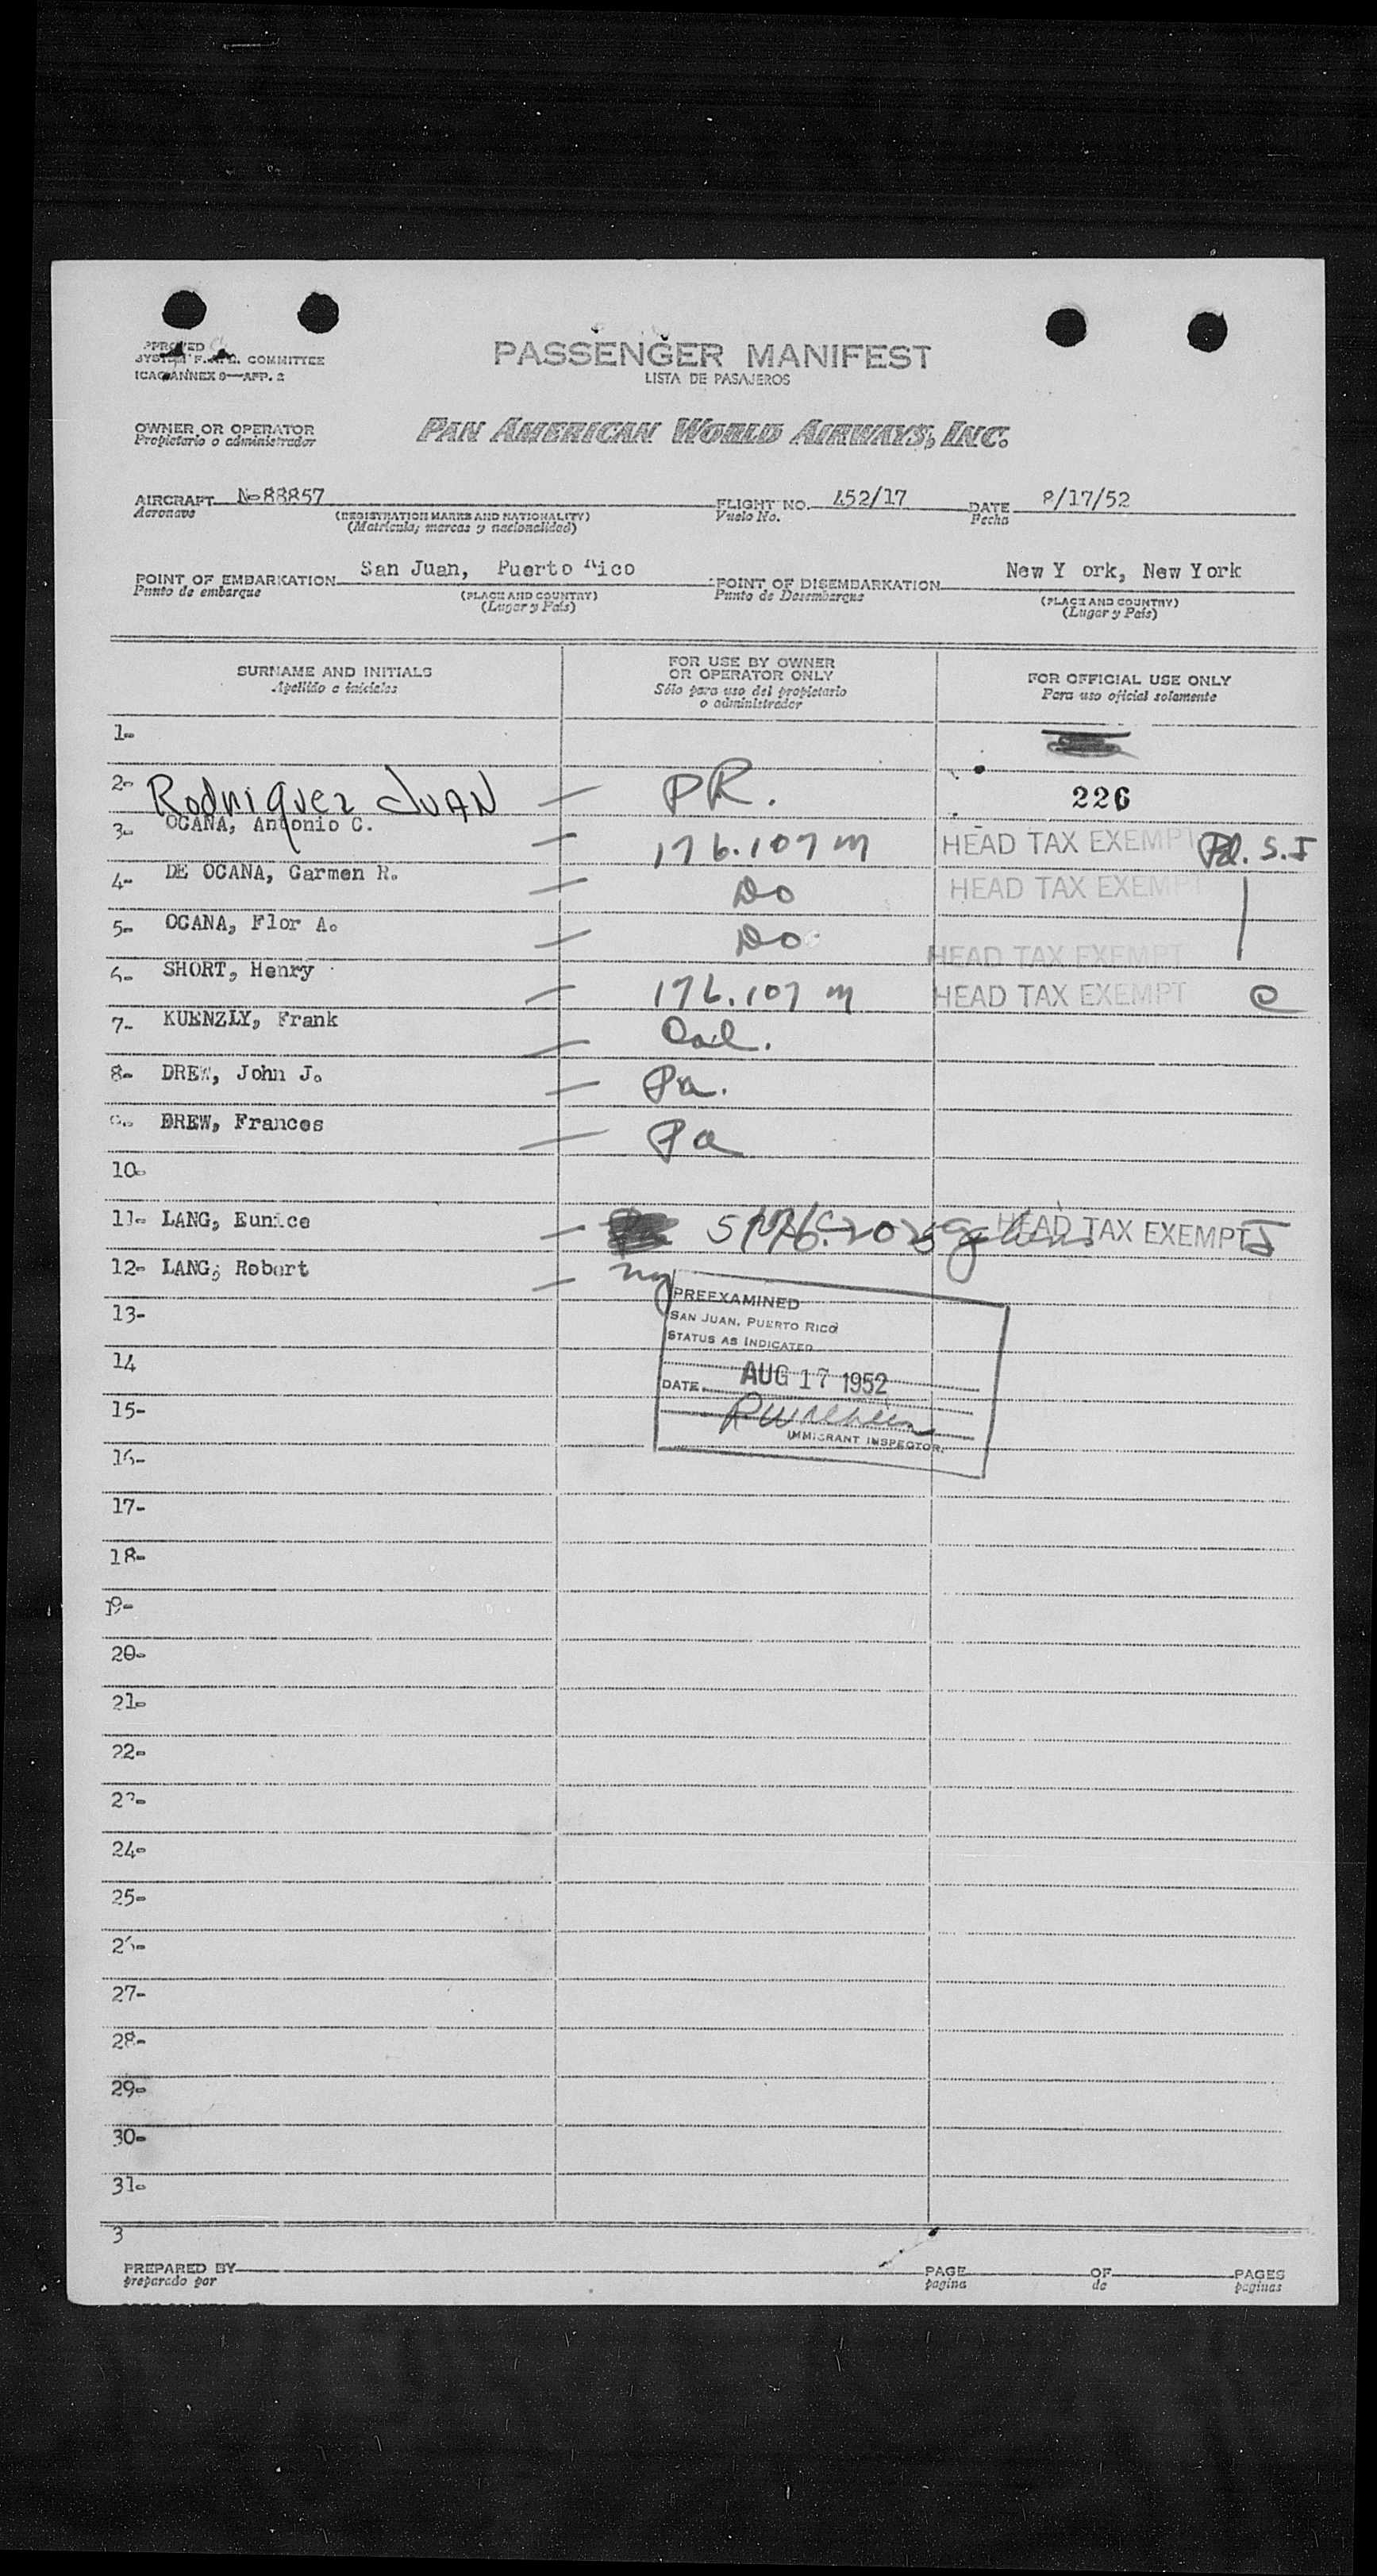 PASSENGER MANIFEST
LISTA DE PASAJEROS
COMMITTEE
ICAO ANNEX 9—APP. 2
OWNER OR OPERATOR
Propietario o administrador
PAN AMERICAN WORLD AIRWAYS, INC.
AIRCRAFT N-88857 FLIGHT NO. 452/17 DATE 8/17/52
Aeronave (REGISTRATION MARKS AND NATIONALITY) Vuelo No. Fecha
(Matrícula; marcas y nacionalidad)
POINT OF EMBARKATION San Juan, Puerto Rico POINT OF DISEMBARKATION New Y ork, New York
Punto de embarque (PLACE AND COUNTRY) Punto de Desembarque (PLACE AND COUNTRY)
(Lugar y País) (Lugar y País)
SURNAME AND INITIALS FOR USE BY OWNER OR OPERATOR ONLY FOR OFFICIAL USE ONLY
Apellido e iniciales Sólo para uso del propietario o administrador Para uso oficial solamente
1-
2- Rodriquez JUAN — PR. 226
3- OCANA, Antonio C. — 176.107 M HEAD TAX EXEMPT Pd. S.J
4- DE OCANA, Carmen R. — Do HEAD TAX EXEMPT
5- OCANA, Flor A. — Do HEAD TAX EXEMPT
6- SHORT, Henry — 176.107 M HEAD TAX EXEMPT C
7- KUENZLY, Frank — Cal.
8- DREW, John J. — Pa.
9- DREW, Frances — Pa
10-
11- LANG, Eunice — HEAD TAX EXEMPT
12- LANG, Robert — NY
PREEXAMINED
SAN JUAN, PUERTO RICO
STATUS AS INDICATED
DATE AUG 17 1952
IMMIGRANT INSPECTOR.
13-
14
15-
16-
17-
18-
19-
20-
21-
22-
23-
24-
25-
26-
27-
28-
29-
30-
31-
3
PREPARED BY PAGE OF PAGES
preparado por pagina de paginas